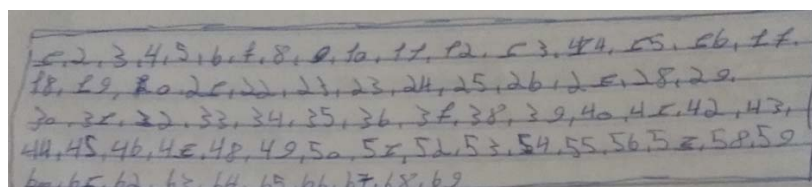 1,2,3,4,5,6,7,8,9,10,11,12,13,14,15,16,17.
18,19,20.21,22,23,23,24,25,26,27,28,29.
30.31,32,33,34,35,36,37,38,39,40,41,42,43,
44,45,46,47,48,49,50,51,52,53,54,55,56,57,58,59
60,61,62,63,64,65,66,67,68,69